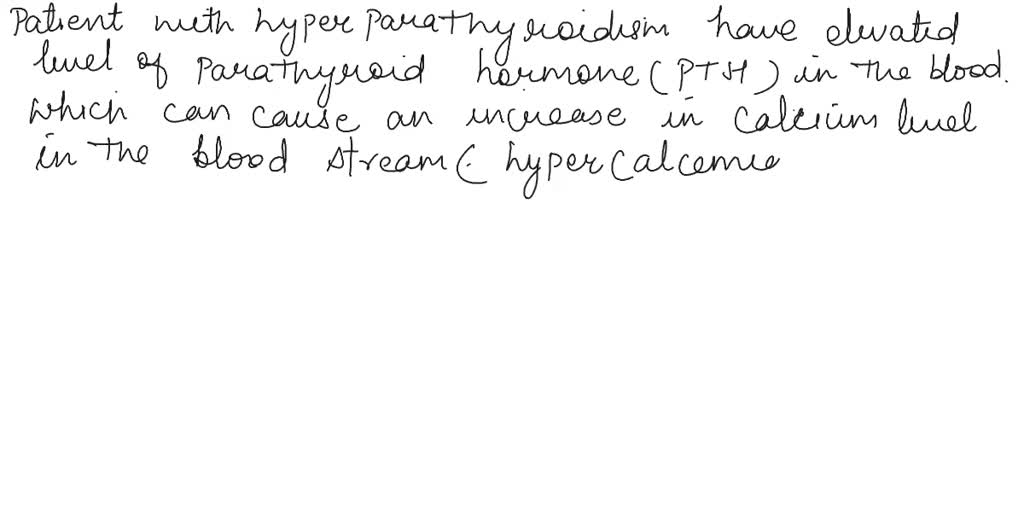 Patient with hyperparathyroidism have elevated
level of parathyroid hormone (PTH) in the blood.
which can cause an increase in calcium level
in the blood stream (hypercalcemia